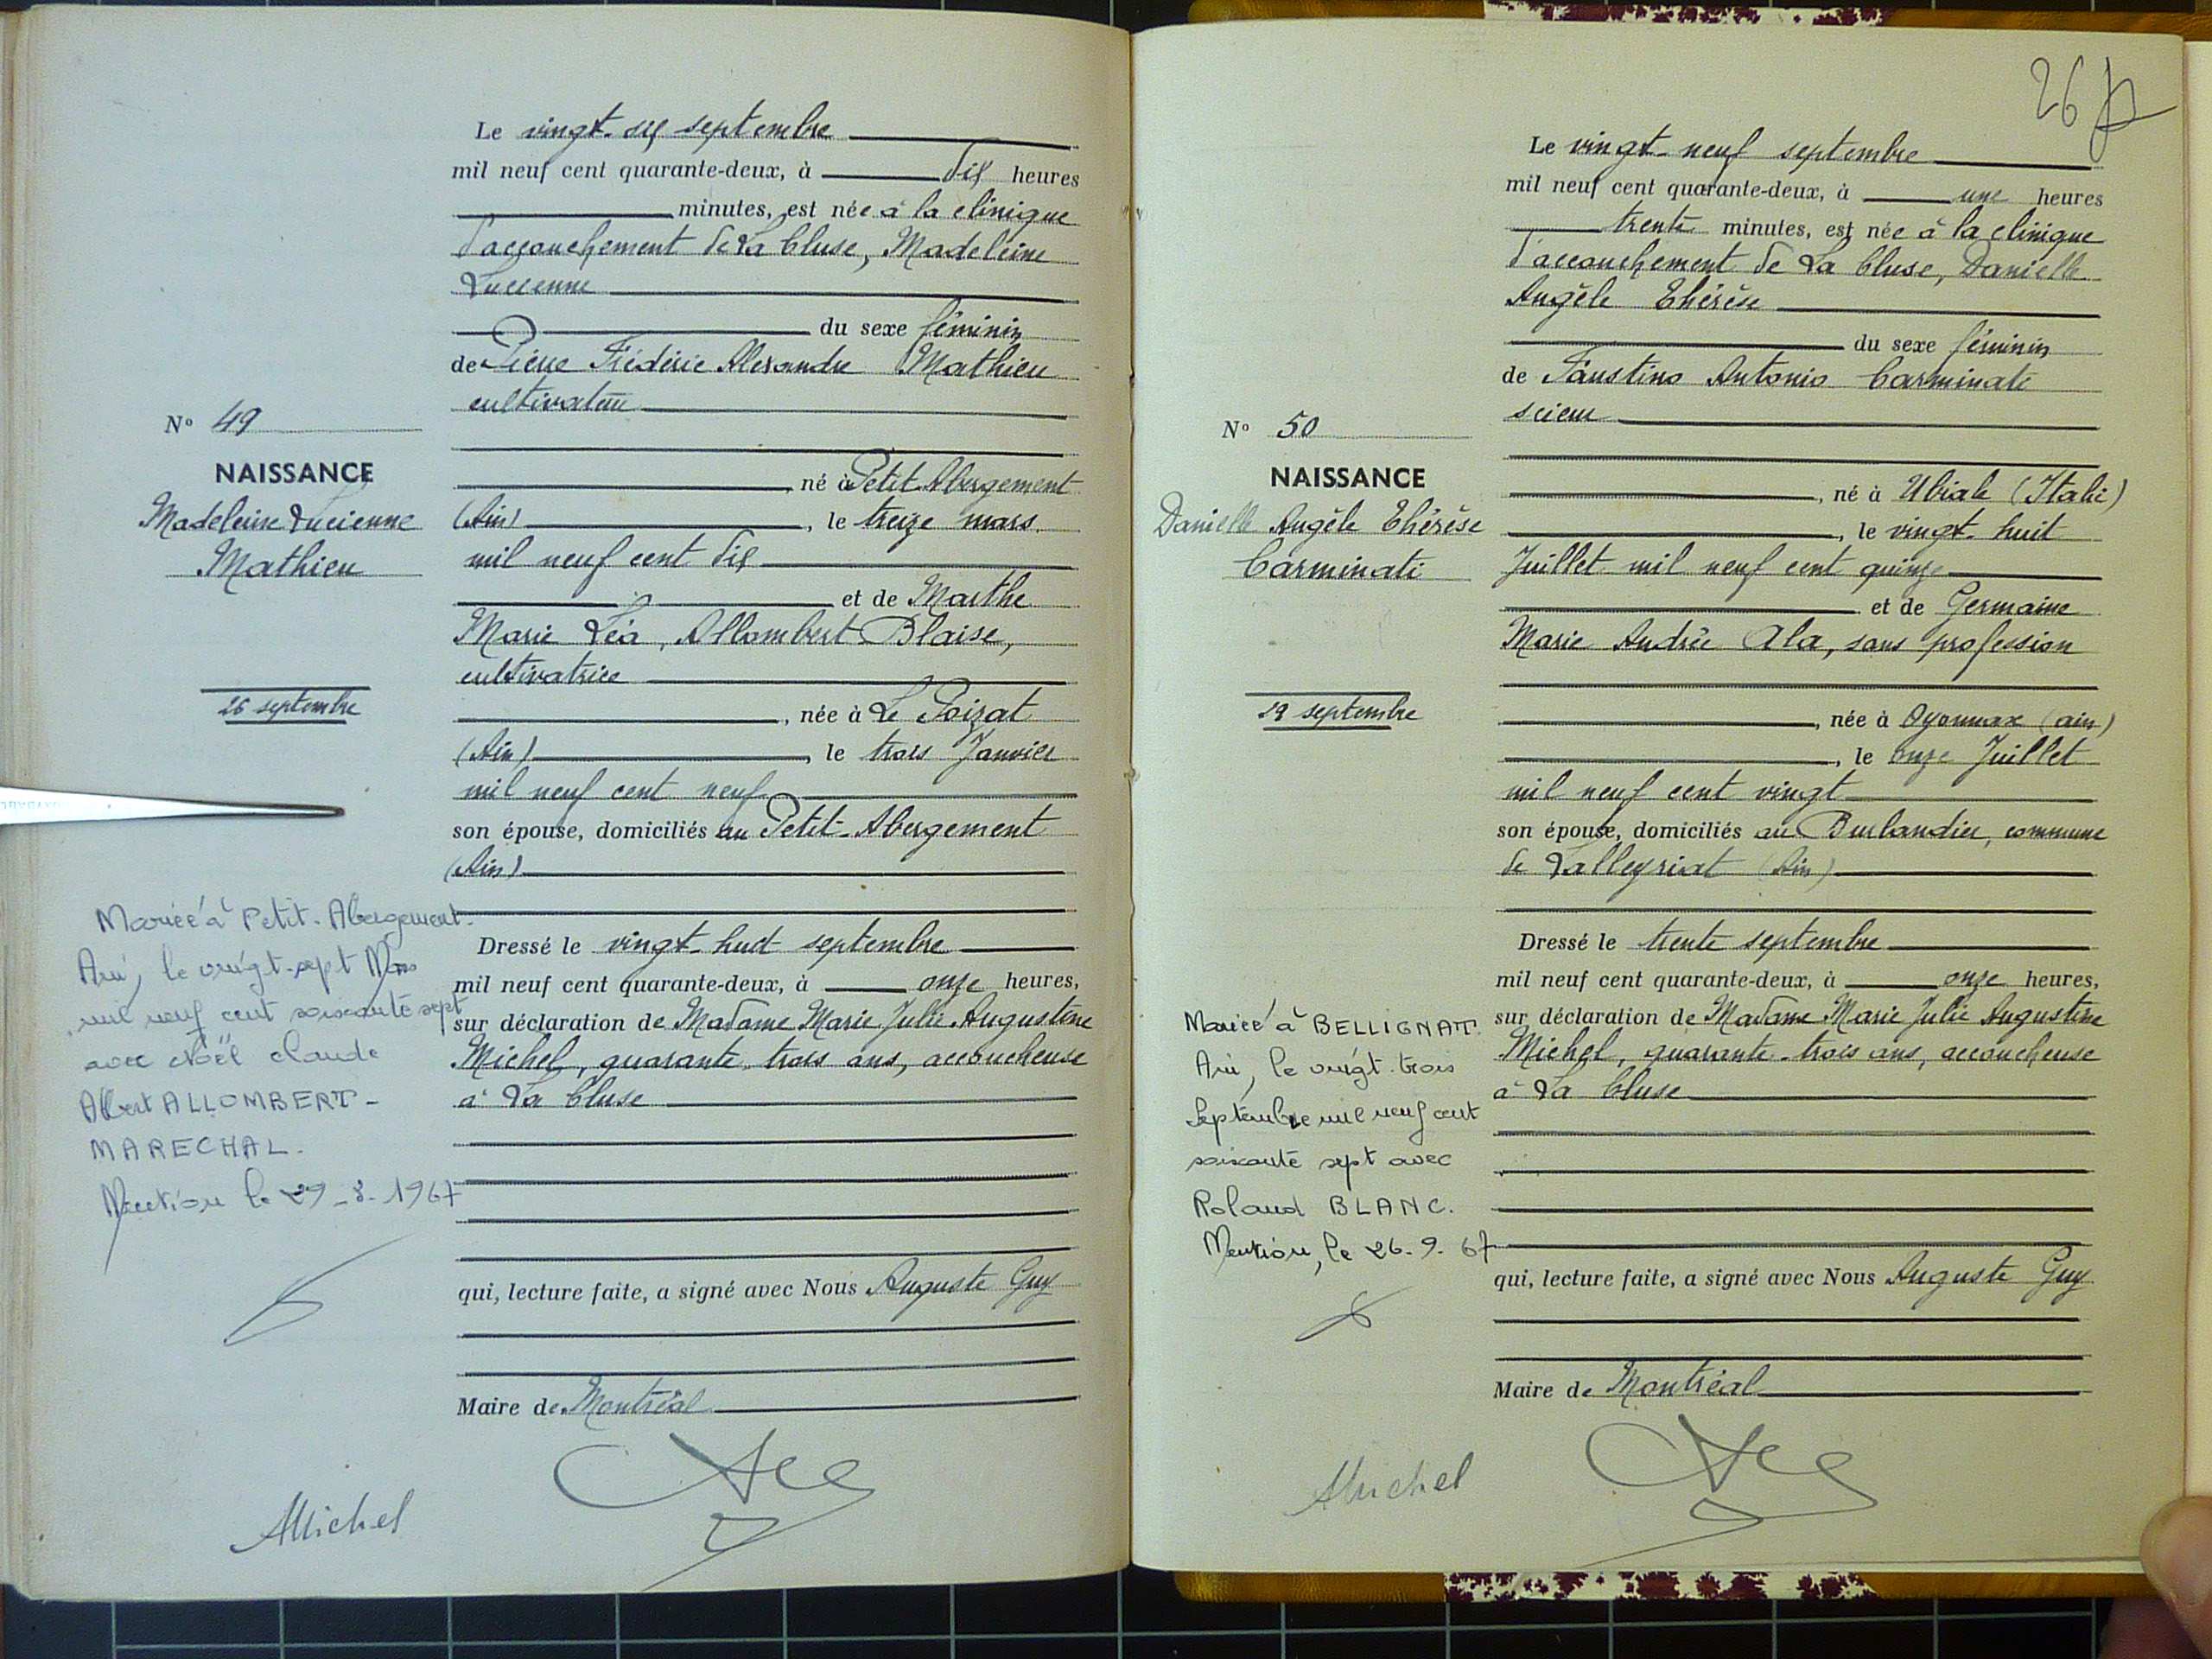 Le vingt-six septembre
mil neuf cent quarante-deux, à dix heures
minutes, est née à la clinique
d'accouchement de La Cluse, Madeleine
Lucienne
du sexe féminin
de Pierre Frédéric Alexandre Mathieu
cultivateur
né à Petit-Abergement
(Ain), le treize mars
mil neuf cent dix
et de Marthe
Marie Léa, Allombert Blaise,
cultivatrice
, née à Le Poizat
(Ain), le trois Janvier
mil neuf cent neuf
son épouse, domiciliés au Petit-Abergement
(Ain)
Dressé le vingt-huit septembre
mil neuf cent quarante-deux, à onze heures,
sur déclaration de Madame Marie Julie Augustine
Michel, quarante-trois ans, accoucheuse
à La Cluse
qui, lecture faite, a signé avec Nous Auguste Guy
Maire de Montréal
Michel
No 49
NAISSANCE
Madeleine Lucienne
Mathieu
26 septembre
Mariée à Petit-Abergement.
Ain, le vingt-sept Mars
mil neuf cent soixante sept
avec Noël Claude
Albert ALLOMBERT-
MARECHAL.
Mention le 29-3-1967
26
Le vingt-neuf septembre
mil neuf cent quarante-deux, à une heures
trente minutes, est née à la clinique
d'accouchement de La Cluse, Danielle
Angèle Thérèse
du sexe féminin
de Faustino Antonio Carminati
scieur
, né à Ubiale (Italie)
, le vingt-huit
Juillet mil neuf cent quinze
et de Germaine
Marie Andrée Ala, sans profession
, née à Oyonnax (ain)
, le onze Juillet
mil neuf cent vingt
son épouse, domiciliés au Burlandier, commune
de Lalleyriat (Ain)
Dressé le trente septembre
mil neuf cent quarante-deux, à onze heures,
sur déclaration de Madame Marie Julie Augustine
Michel, quarante-trois ans, accoucheuse
à La Cluse
qui, lecture faite, a signé avec Nous Auguste Guy
Maire de Montréal
Michel
No 50
NAISSANCE
Danielle Angèle Thérèse
Carminati
29 septembre
Mariée à BELLIGNAT.
Ain, le vingt-trois
Septembre mil neuf cent
soixante sept avec
Roland BLANC.
Mention, le 26-9-67